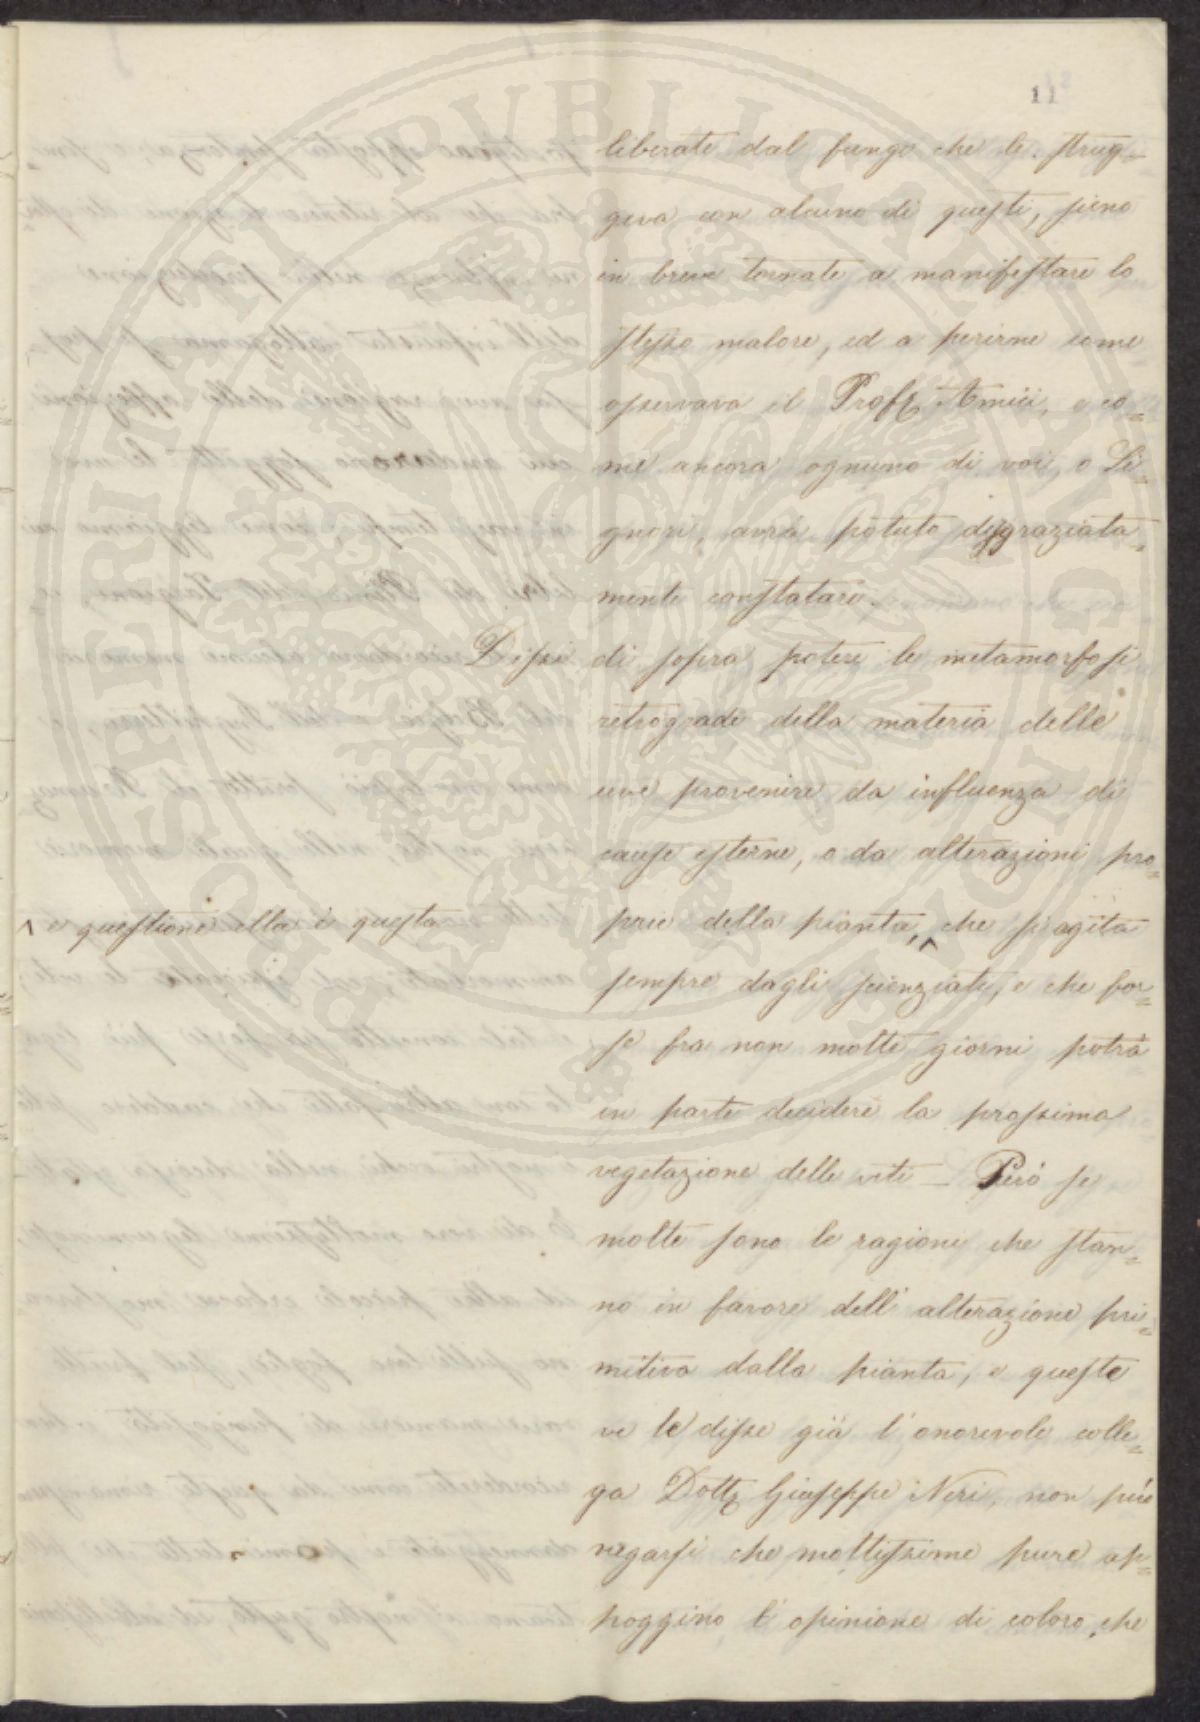 11
liberate dal fungo che le strug-
geva con alcuno di questi, sieno
in breve tornate a manifestare lo
stesso malore, ed a perirne come
osservava il Prof. Amici, e co=
me ancora ognuno di voi, o Si=
gnori, avrà potuto disgraziata=
mente constatare.
Dissi di sopra potere le metamorfosi
retrograde della materia delle
uve provenire da influenza di
cause esterne, o da alterazioni pro=
prie della pianta, ^ che si agita
^ e questione ella è questa
sempre dagli scienziati, e che for=
se fra non molti giorni potrà
in parte decidere la prossima
vegetazione delle viti — Però se
molte sono le ragioni che stan=
no in favore dell'alterazione pri=
mitiva dalla pianta, e queste
ve le disse già l'onorevole colle=
ga Dott. Giuseppe Neri, non può
negarsi che moltissime pure ap=
poggino l'opinione di coloro, che
PROSPERITATI PUBLICAE AUGENDAE